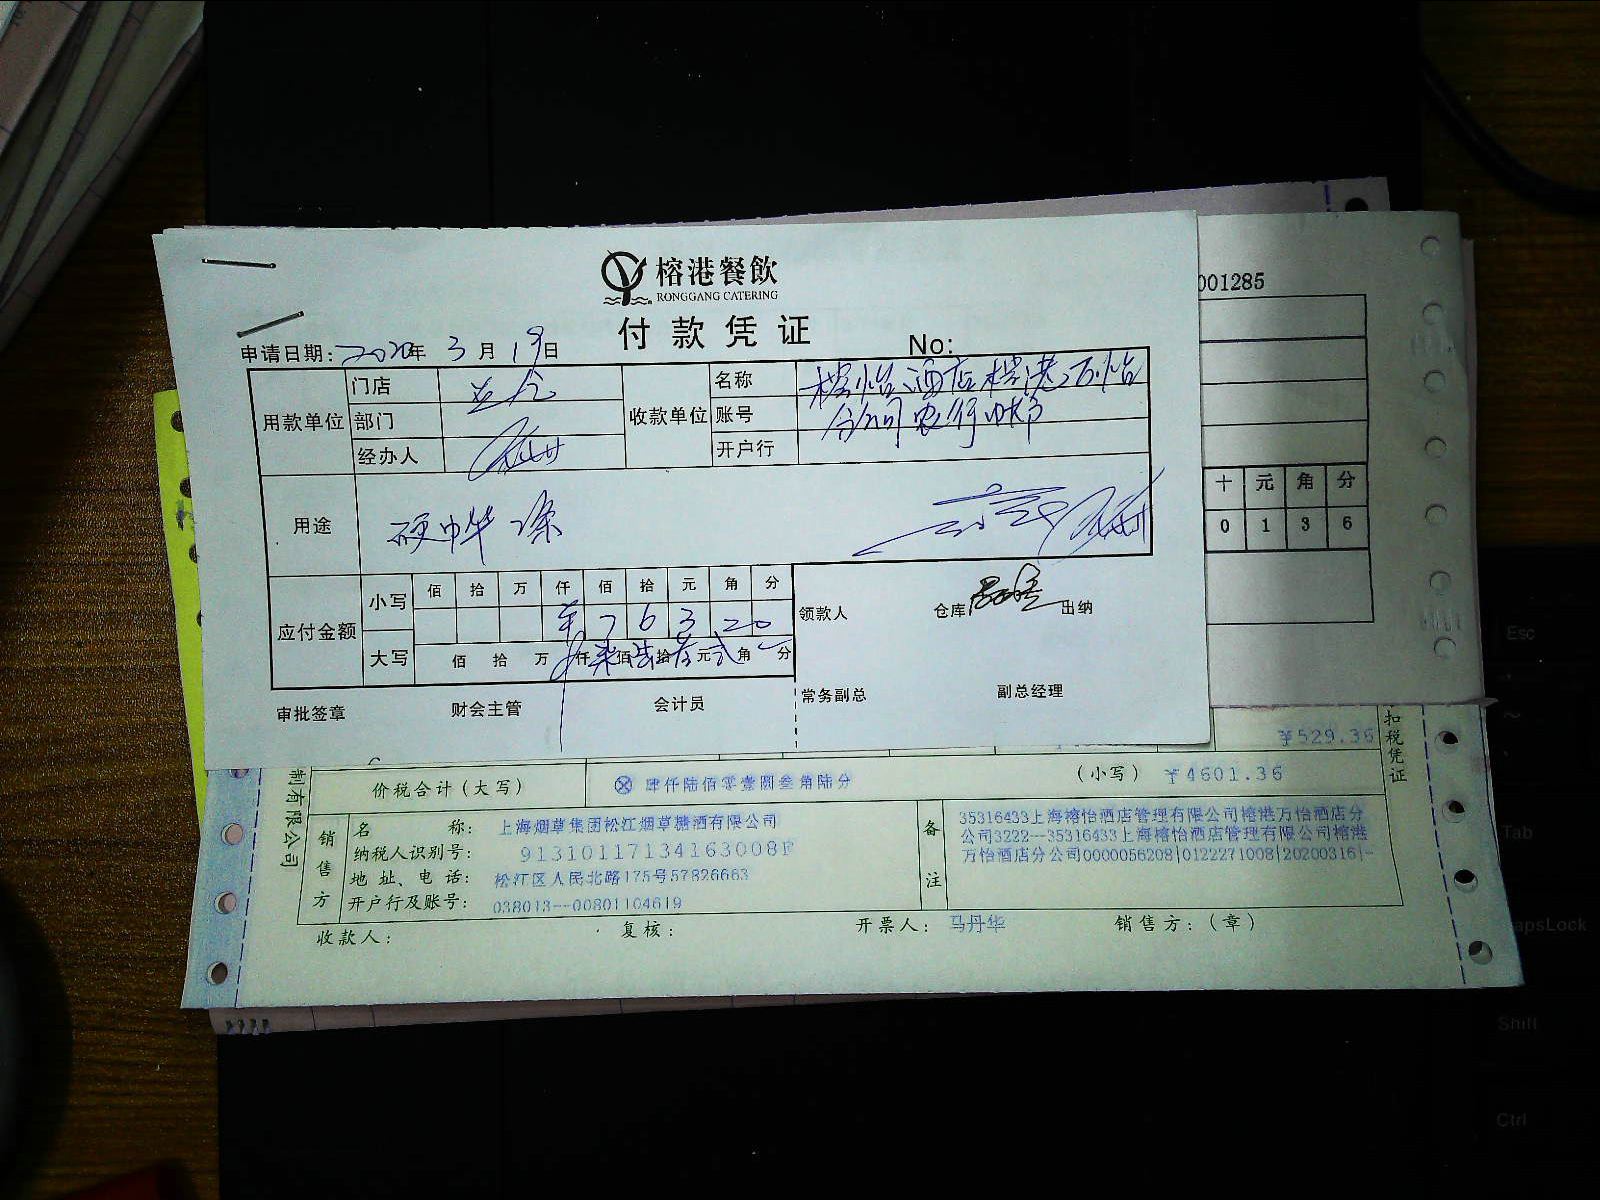 榕港餐飲
RONGGANG CATERING
付款凭证
申请日期: 2020年 3月 19日 No:
001285
用款单位 门店 收款单位 名称 榕怡酒店榕港万怡
部门 账号 分公司农行帐户
经办人 开户行
用途 硬中华 2条
十 元 角 分
0 1 3 6
应付金额 小写 佰 拾 万 仟 佰 拾 元 角 分
¥ 7 6 3 2 0
大写 佰 拾 万 仟 柒 佰 陆 拾 叁 元 贰 角 分
领款人 仓库 出纳
常务副总 副总经理
审批签章 财会主管 会计员
扣税凭证
制有限公司
¥529.36
价税合计(大写) ⊗ 肆仟陆佰零壹圆叁角陆分 (小写) ¥4601.36
销售方
名 称: 上海烟草集团松江烟草糖酒有限公司
纳税人识别号: 91310117134163008P
地 址、电 话: 松江区人民北路175号57826663
开户行及账号: 038013--00801104619
备注
35316433上海榕怡酒店管理有限公司榕港万怡酒店分
公司3222--35316433上海榕怡酒店管理有限公司榕港
万怡酒店分公司0000056208|0122271008|20200316|-
收款人: 复核: 开票人: 马丹华 销售方:(章)
Esc
Tab
apsLock
Shift
Ctrl